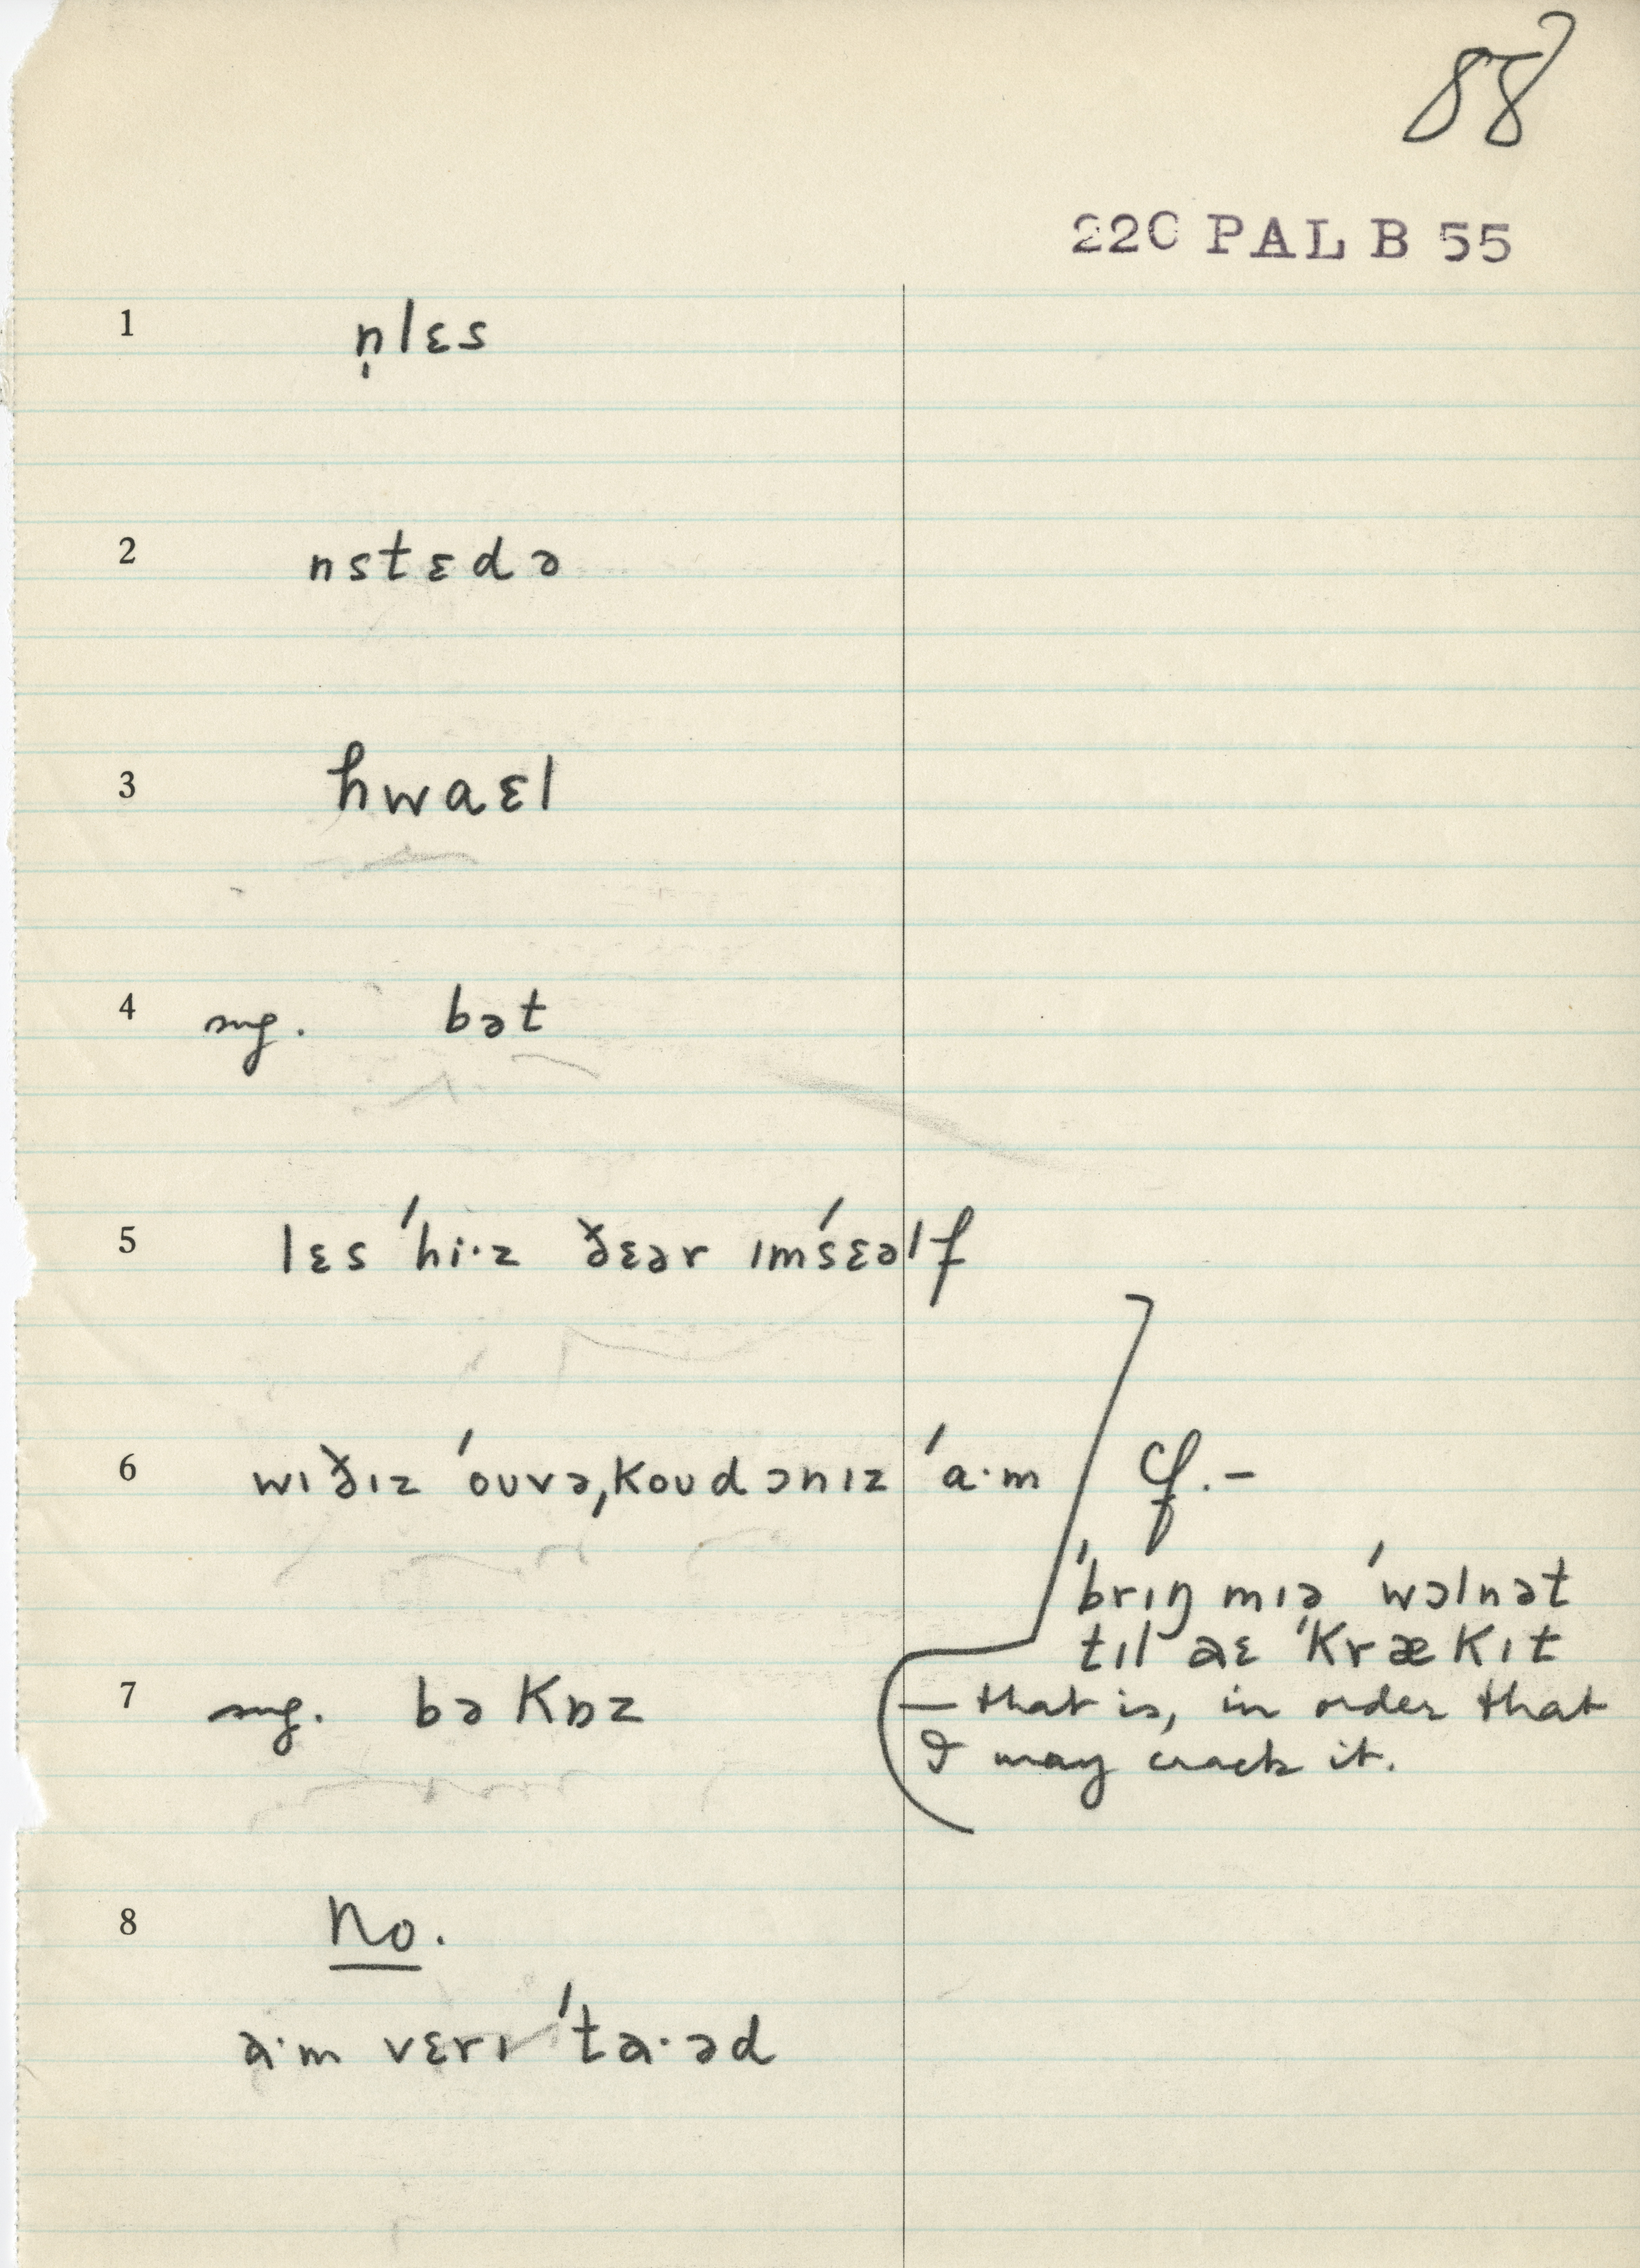 88
220 PAL B 55
1 n̩lɛs
2 nstɛdə
3 hwaɛl
4 sug. bət
5 lɛs ˈhi·z ðɛər ɪmˈsɛəlf
6 wɪðɪz ˈoʊvəˌkoʊdɔnɪz ˈa·m
cf. –
ˈbrɪŋ mɪə ˈwɔlnət
tɪl aɛ ˈkrækɪt
— that is, in order that
I may crack it.
7 sug. bəkɒz
8 No.
a·m vɛrɪ ˈta·əd